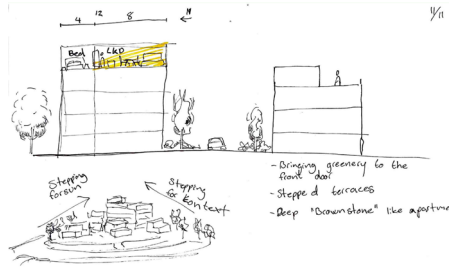 11/11
12
4 8 N
Bed LKD
- Bringing greenery to the
front door
- Stepped terraces
- Deep "Brownstone" like apartme
Stepping
for sun
Stepping
for kontext